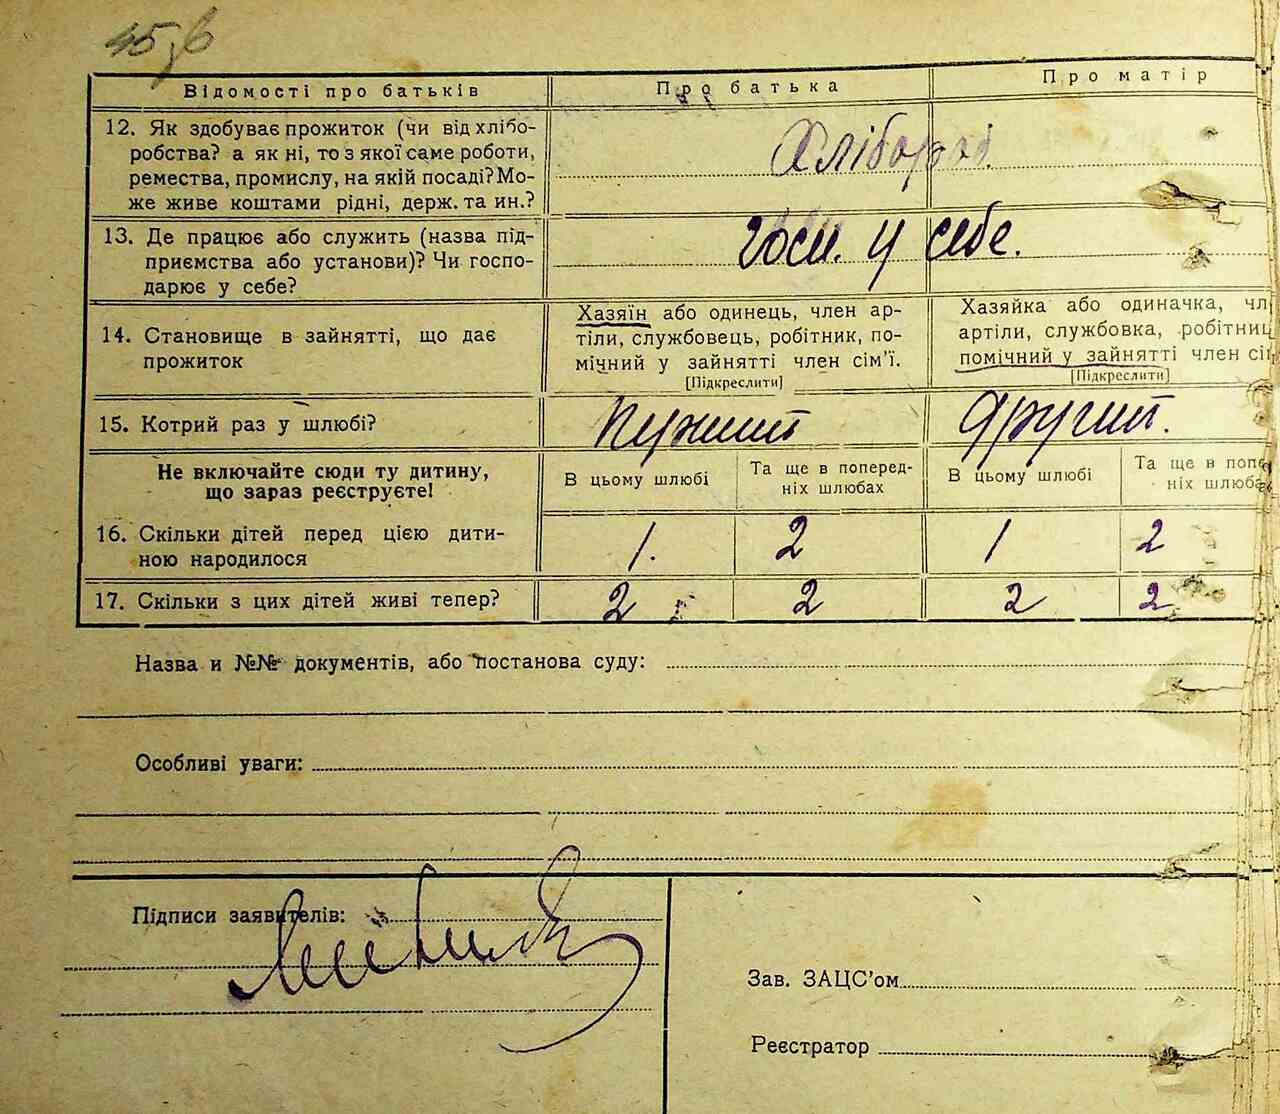 45зв
Відомості про батьків
Про батька
Про матір
12. Як здобуває прожиток (чи від хлібо-
робства? а як ні, то з якої саме роботи,
ремества, промислу, на якій посаді? Мо-
же живе коштами рідні, держ. та ин.?
Хлібороб
13. Де працює або служить (назва під-
приємства або установи)? Чи госпо-
дарює у себе?
госп. у себе.
14. Становище в зайнятті, що дає
прожиток
Хазяїн або одинець, член ар-
тіли, службовець, робітник, по-
мічний у зайнятті член сім'ї.
[Підкреслити]
Хазяйка або одиначка, чл
артіли, службовка, робітниц
помічний у зайнятті член сім
[Підкреслити]
15. Котрий раз у шлюбі?
другий.
Не включайте сюди ту дитину,
що зараз реєструєте!
В цьому шлюбі
Та ще в поперед-
ніх шлюбах
В цьому шлюбі
Та ще в попе
ніх шлюба
16. Скільки дітей перед цією дити-
ною народилося
1. 2 1 2
17. Скільки з цих дітей живі тепер?
2 2 2 2
Назва и №№ документів, або постанова суду:
Особливі уваги:
Підписи заявителів:
Зав. ЗАЦС'ом
Реєстратор